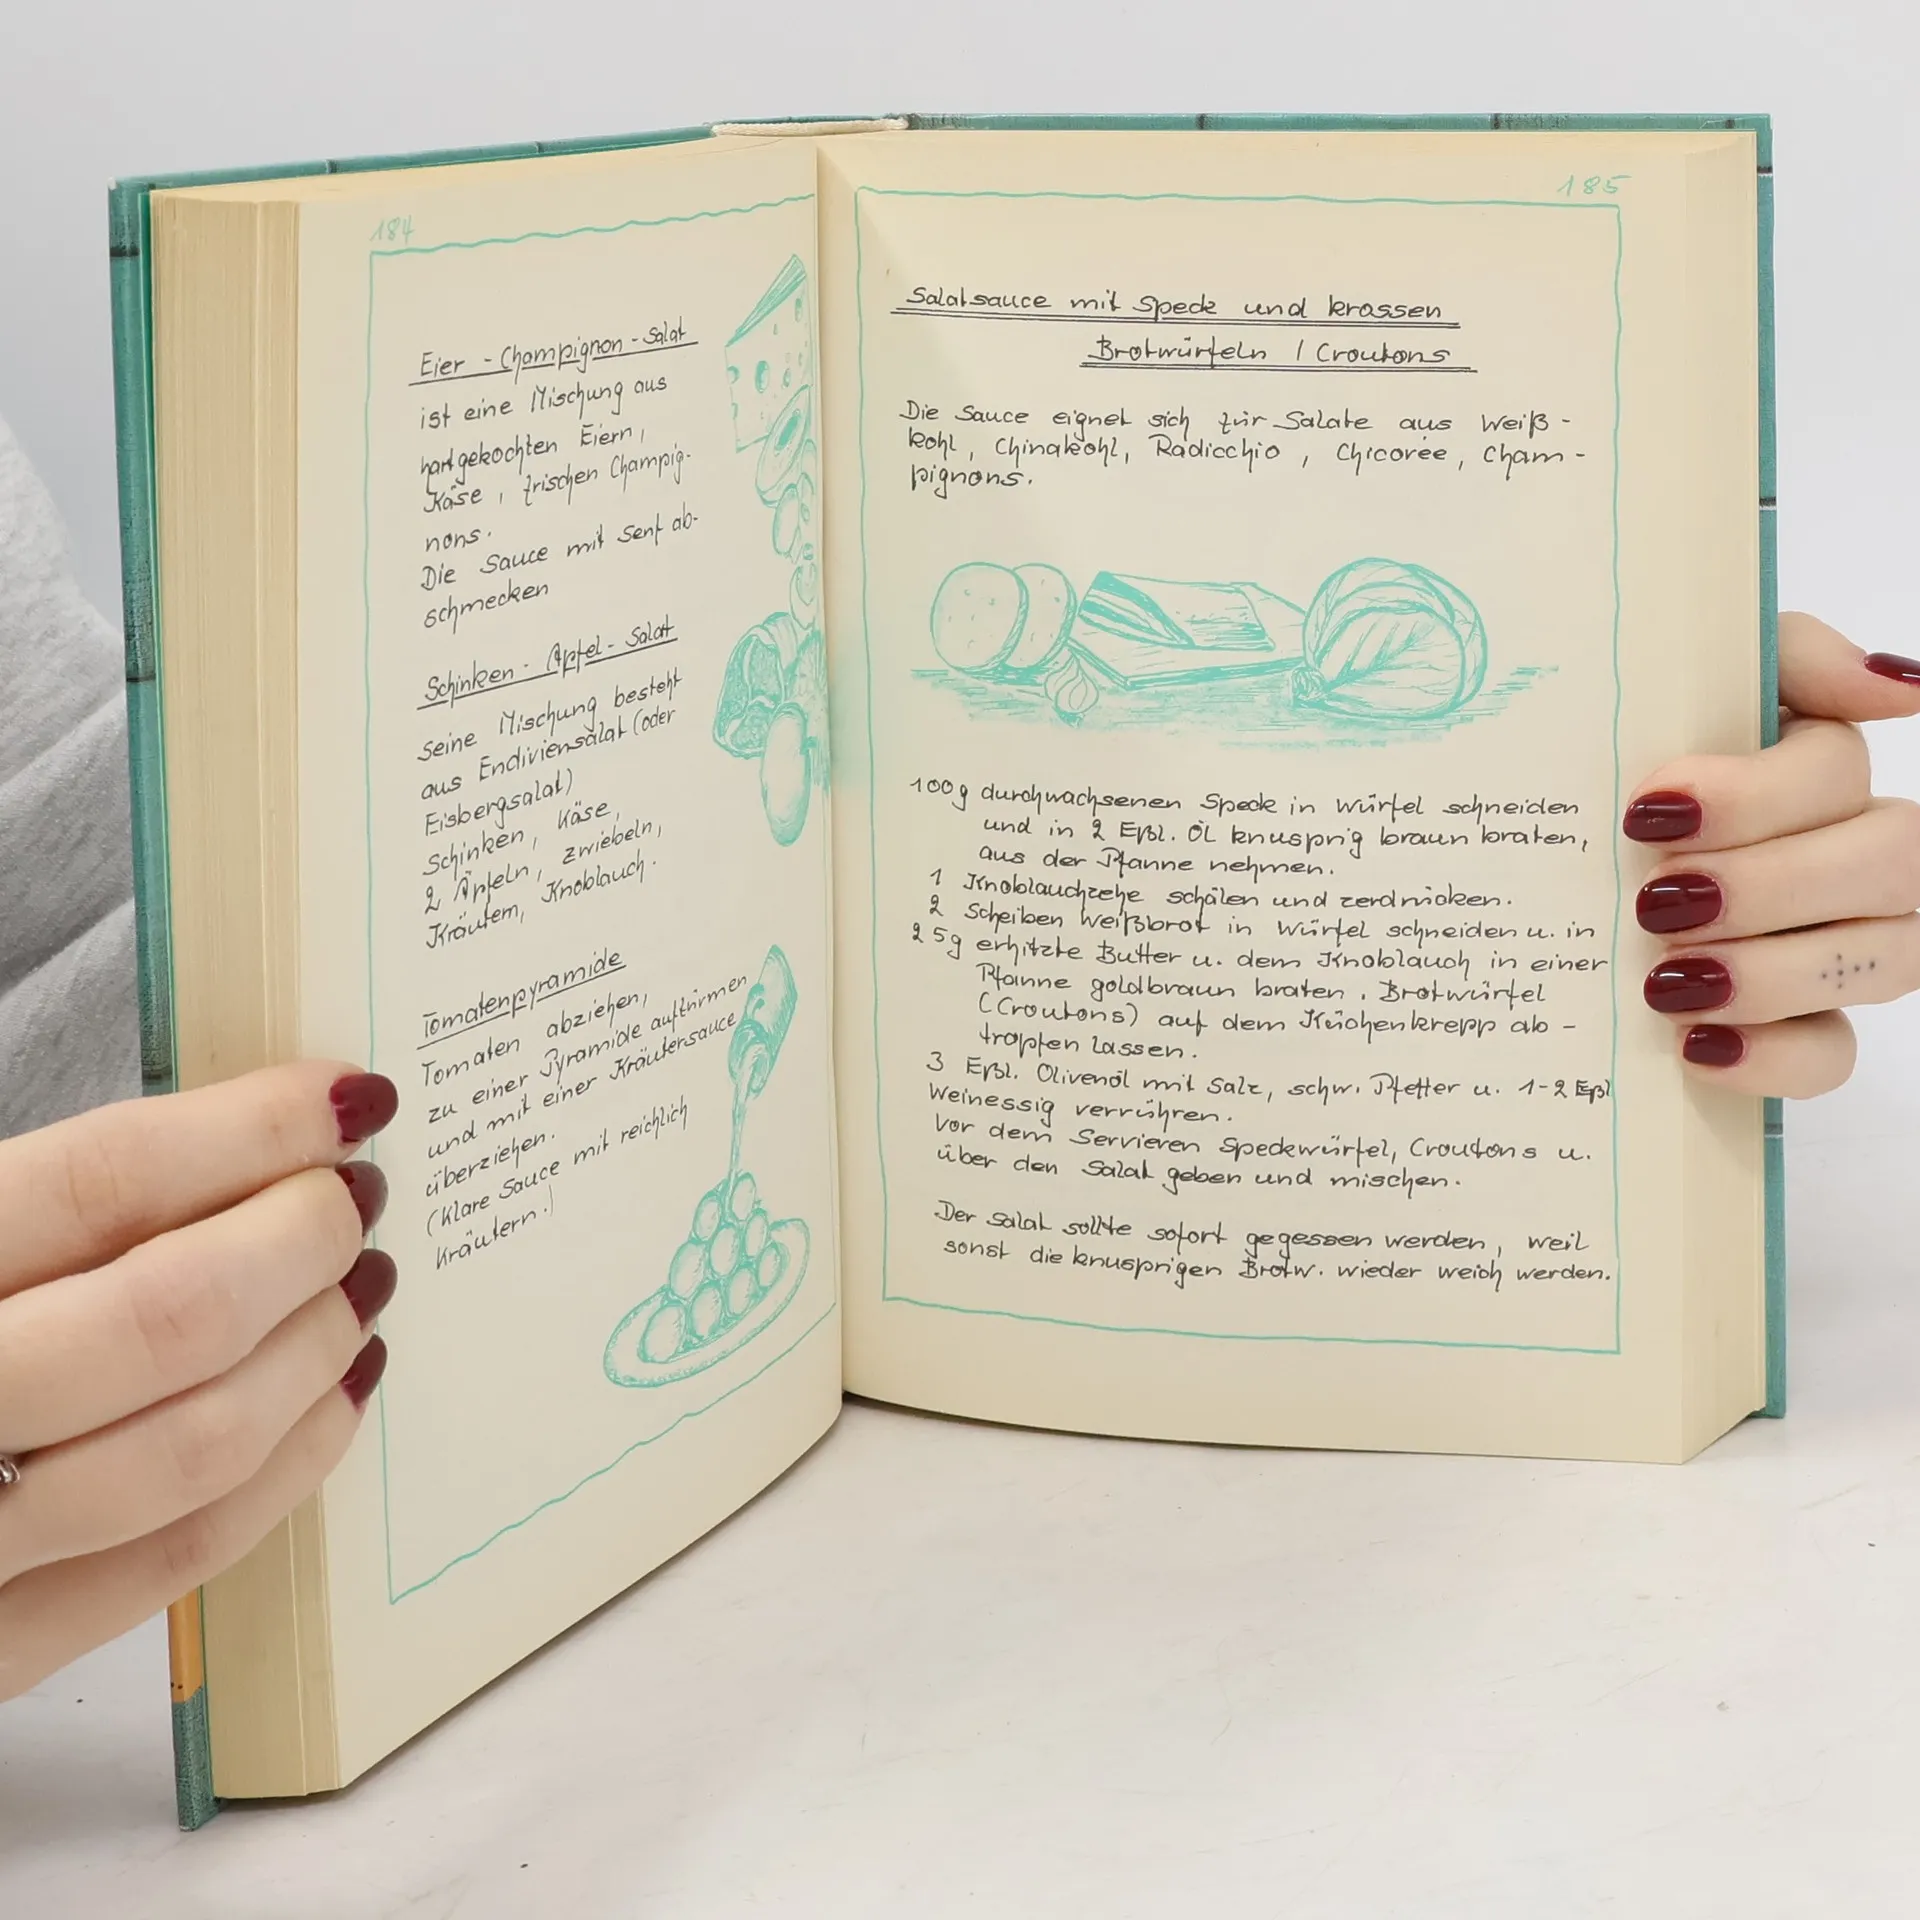 184
Eier - Champignon - Salat
ist eine Mischung aus
hartgekochten Eiern,
Käse, frischen Champig-
nons.
Die Sauce mit Senf ab-
schmecken
Schinken - Apfel - Salat
Seine Mischung besteht
aus Endiviensalat (oder
Eisbergsalat)
Schinken, Käse,
2 Äpfeln, Zwiebeln,
Kräutern, Knoblauch.
Tomatenpyramide
Tomaten abziehen,
zu einer Pyramide auftürmen
und mit einer Kräutersauce
überziehen.
(Klare Sauce mit reichlich
Kräutern.)
185
Salatsauce mit Speck und krossen
Brotwürfeln / Croutons
Die Sauce eignet sich für Salate aus Weiß-
kohl, Chinakohl, Radicchio, Chicorée, Cham-
pignons.
100g durchwachsenen Speck in Würfel schneiden
und in 2 Eßl. Öl knusprig braun braten,
aus der Pfanne nehmen.
1 Knoblauchzehe schälen und zerdrücken.
2 Scheiben Weißbrot in Würfel schneiden u. in
25g erhitzte Butter u. dem Knoblauch in einer
Pfanne goldbraun braten. Brotwürfel
(Croutons) auf dem Küchenkrepp ab-
tropfen lassen.
3 Eßl. Olivenöl mit Salz, schw. Pfeffer u. 1-2 Eßl
Weinessig verrühren.
Vor dem Servieren Speckwürfel, Croutons u.
über den Salat geben und mischen.
Der Salat sollte sofort gegessen werden, weil
sonst die knusprigen Brotw. wieder weich werden.